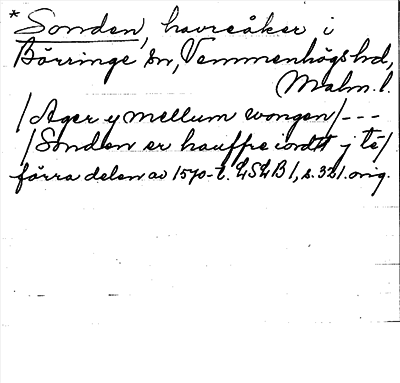 * Sonden, havreåker i
Börringe sn, Vemmenhögs hd,
Malm. l.
/Ager y mellum wongen/ - - -
/Sonden er hauffre iordtt j té/
förra delen av 1570-t. LSLB 1, s. 321. orig.